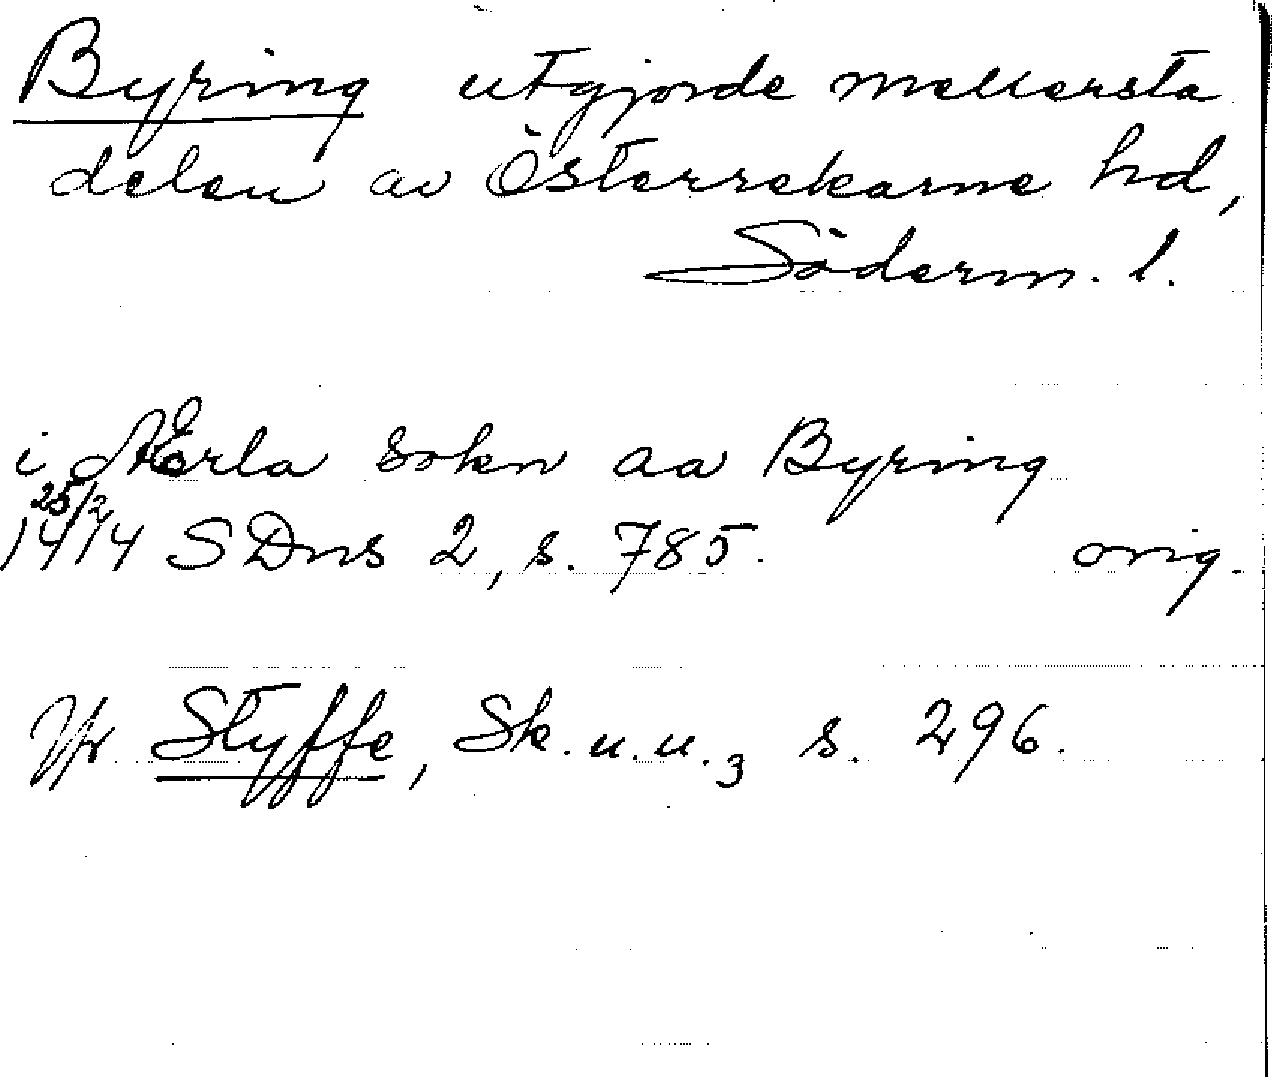 Byring utgjorde mellersta
delen av Österrekarne hd,
Söderm. l.
i Ærla sokn aa Byring
25/2
1414 SDns 2, s. 785. orig.
Jfr Styffe, Sk.u.u.3 s. 296.